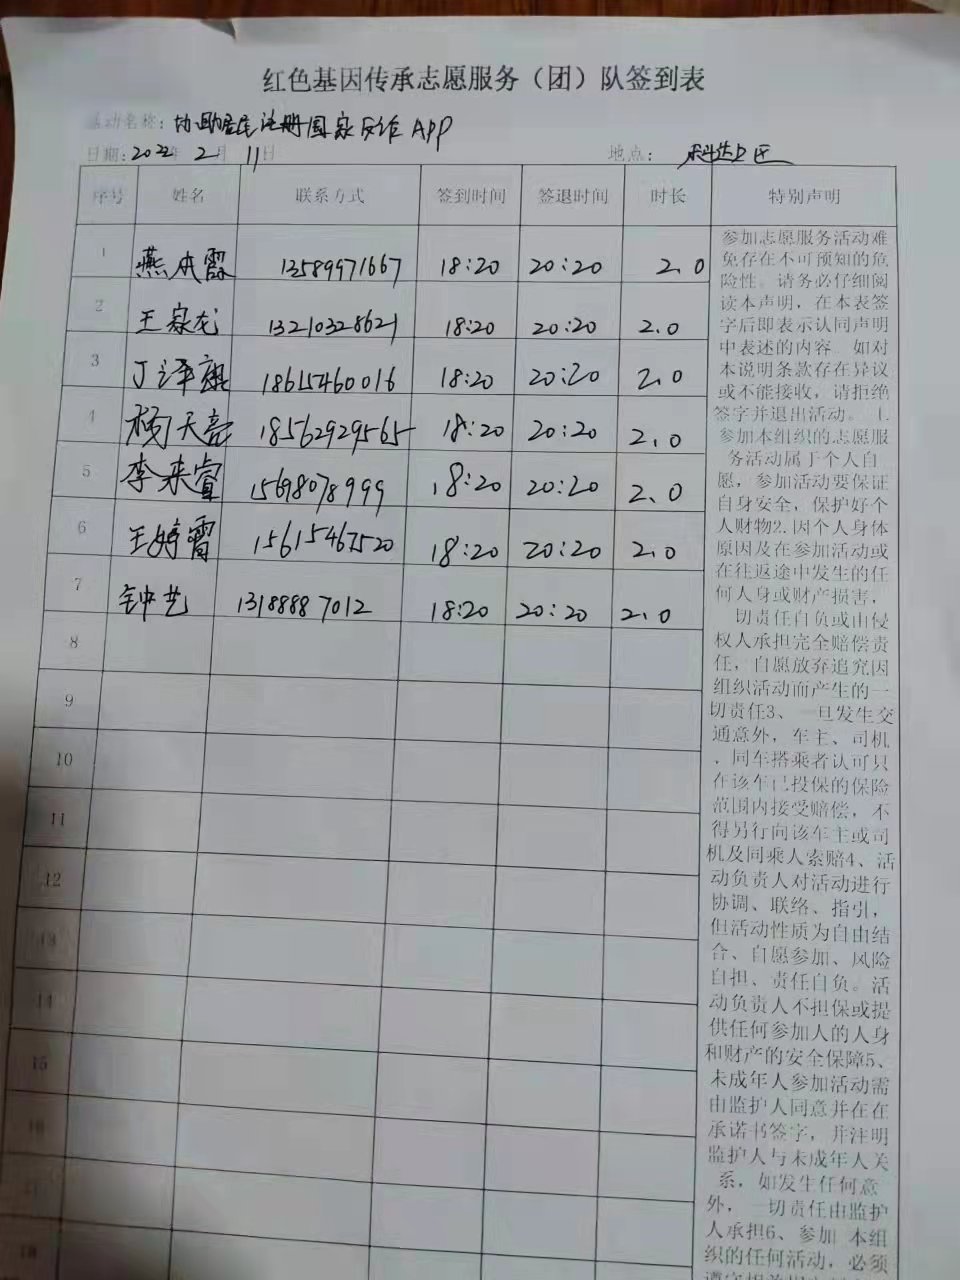 红色基因传承志愿服务（团）队签到表
活动名称：协助居民注册国家反诈APP
日期：2022年 2月 11日 地点：
序号 姓名 联系方式 签到时间 签退时间 时长 特别声明
1 燕本霞 13589971667 18:20 20:20 2.0
2 王家龙 13210328621 18:20 20:20 2.0
3 丁泽 18615460016 18:20 20:20 2.0
4 杨天亮 18562929565 18:20 20:20 2.0
5 李来睿 15698078999 18:20 20:20 2.0
6 王婷霄 15615467520 18:20 20:20 2.0
7 钟艺 13188887012 18:20 20:20 2.0
8
9
10
11
12
13
14
15
16
17
18
参加志愿服务活动难
免存在不可预知的危
险性。请务必仔细阅
读本声明，在本表签
字后即表示认同声明
中表述的内容 如对
本说明条款存在异议
或不能接收，请拒绝
签字并退出活动。 1.
参加本组织的志愿服
务活动属于个人自
愿，参加活动要保证
自身安全，保护好个
人财物2.因个人身体
原因及在参加活动或
在往返途中发生的任
何人身或财产损害，
一切责任自负或由侵
权人承担完全赔偿责
任，自愿放弃追究因
组织活动而产生的一
切责任3、一旦发生交
通意外，车主、司机
、同车搭乘者认可只
在该车已投保的保险
范围内接受赔偿，不
得另行向该车主或司
机及同乘人索赔4、活
动负责人对活动进行
协调、联络、指引，
但活动性质为自由结
合、自愿参加、风险
自担、责任自负。活
动负责人不担保或提
供任何参加人的人身
和财产的安全保障5、
未成年人参加活动需
由监护人同意并在在
承诺书签字，并注明
监护人与未成年人关
系，如发生任何意
外，一切责任由监护
人承担6、参加 本组
织的任何活动，必须